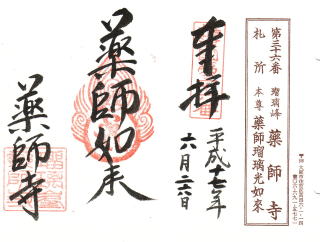 第三十六番
札所
瑠璃峰
薬師寺
本尊
薬師瑠璃光如來
奉拝
平成十七年
六月二六日
薬師如来
薬師寺